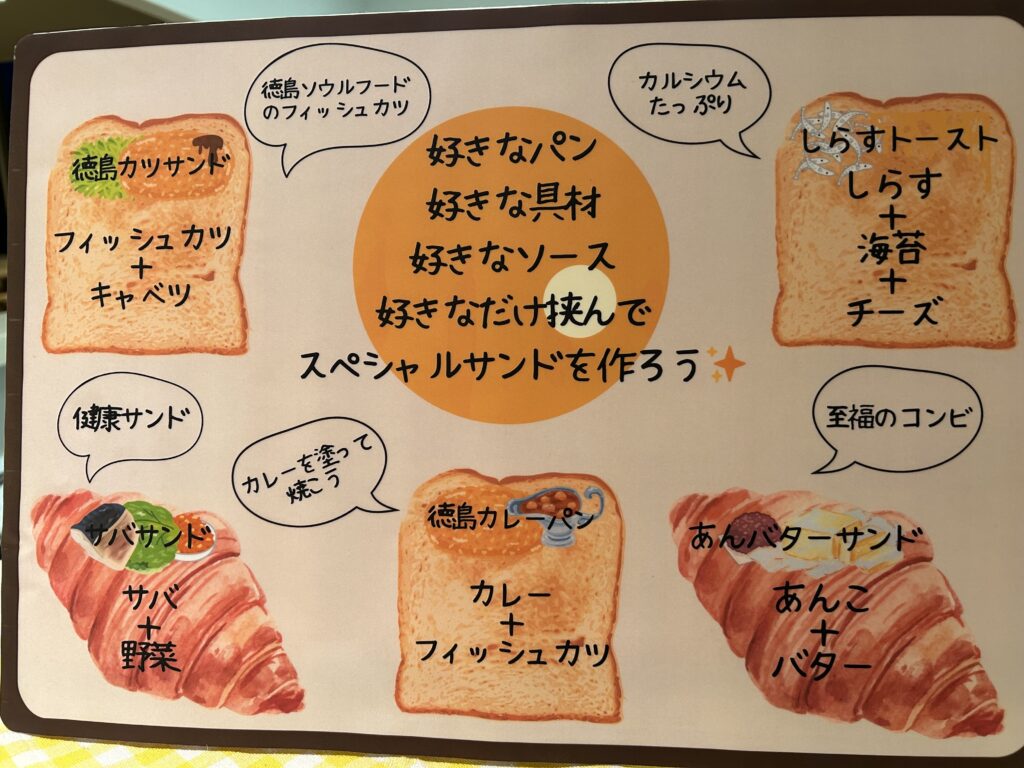 徳島ソウルフード
のフィッシュカツ
徳島カツサンド
フィッシュカツ
+
キャベツ
好きなパン
好きな具材
好きなソース
好きなだけ挟んで
スペシャルサンドを作ろう
カルシウム
たっぷり
しらすトースト
しらす
+
海苔
+
チーズ
健康サンド
サバサンド
サバ
+
野菜
カレーを塗って
焼こう
徳島カレーパン
カレー
+
フィッシュカツ
至福のコンビ
あんバターサンド
あんこ
+
バター